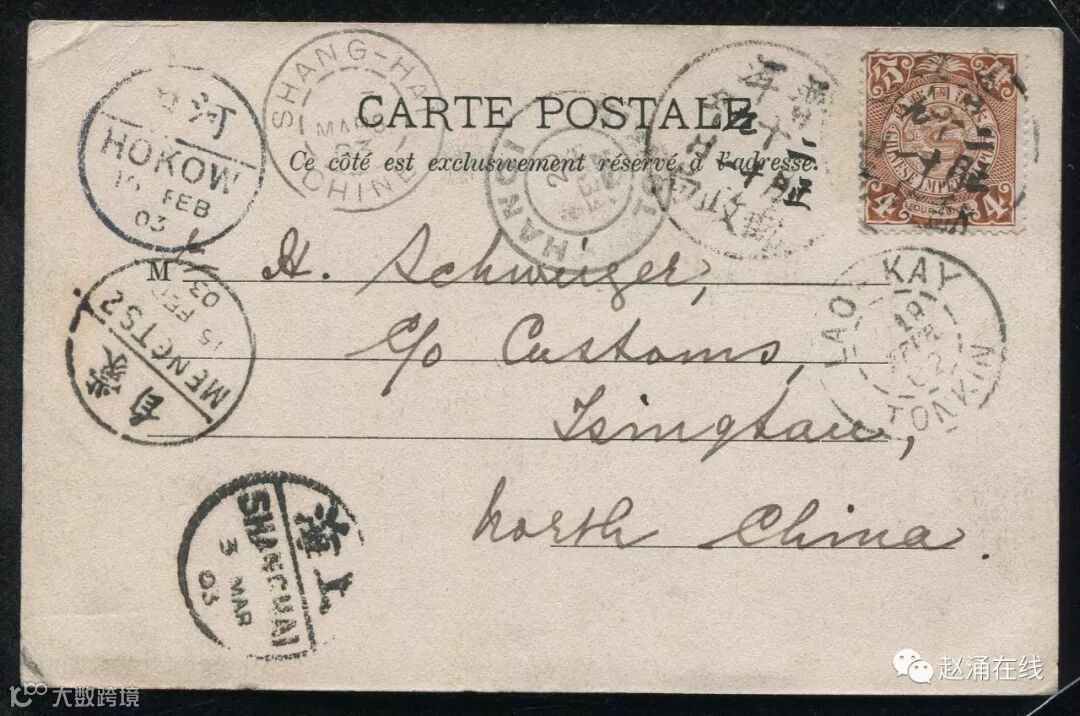 CARTE POSTALE
Ce côté est exclusivement réservé à l'adresse.
M
H. Schweiger,
c/o Customs,
Tsingtau,
North China.
SHANG-HAI
MARS
03
CHINE
河口
HOKOW
FEB
03
蒙自
MENGTSZ
15 FEB
03
上海
SHANGHAI
3 MAR
03
LAO-KAY
TONKIN
CHINESE IMPERIAL
FOUR CENTS
4
4
赵涌在线
大数跨境